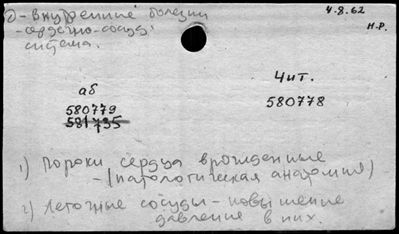 2 - Внутренние болезни
4.8.62
- сердечно-сосуд.
Н.Р.
система.
аб
Чит.
580779
580778
581735
1) Пороки сердца врожденные
- (патологическая анатомия)
2) Легочные сосуды - повышение
давление в них.